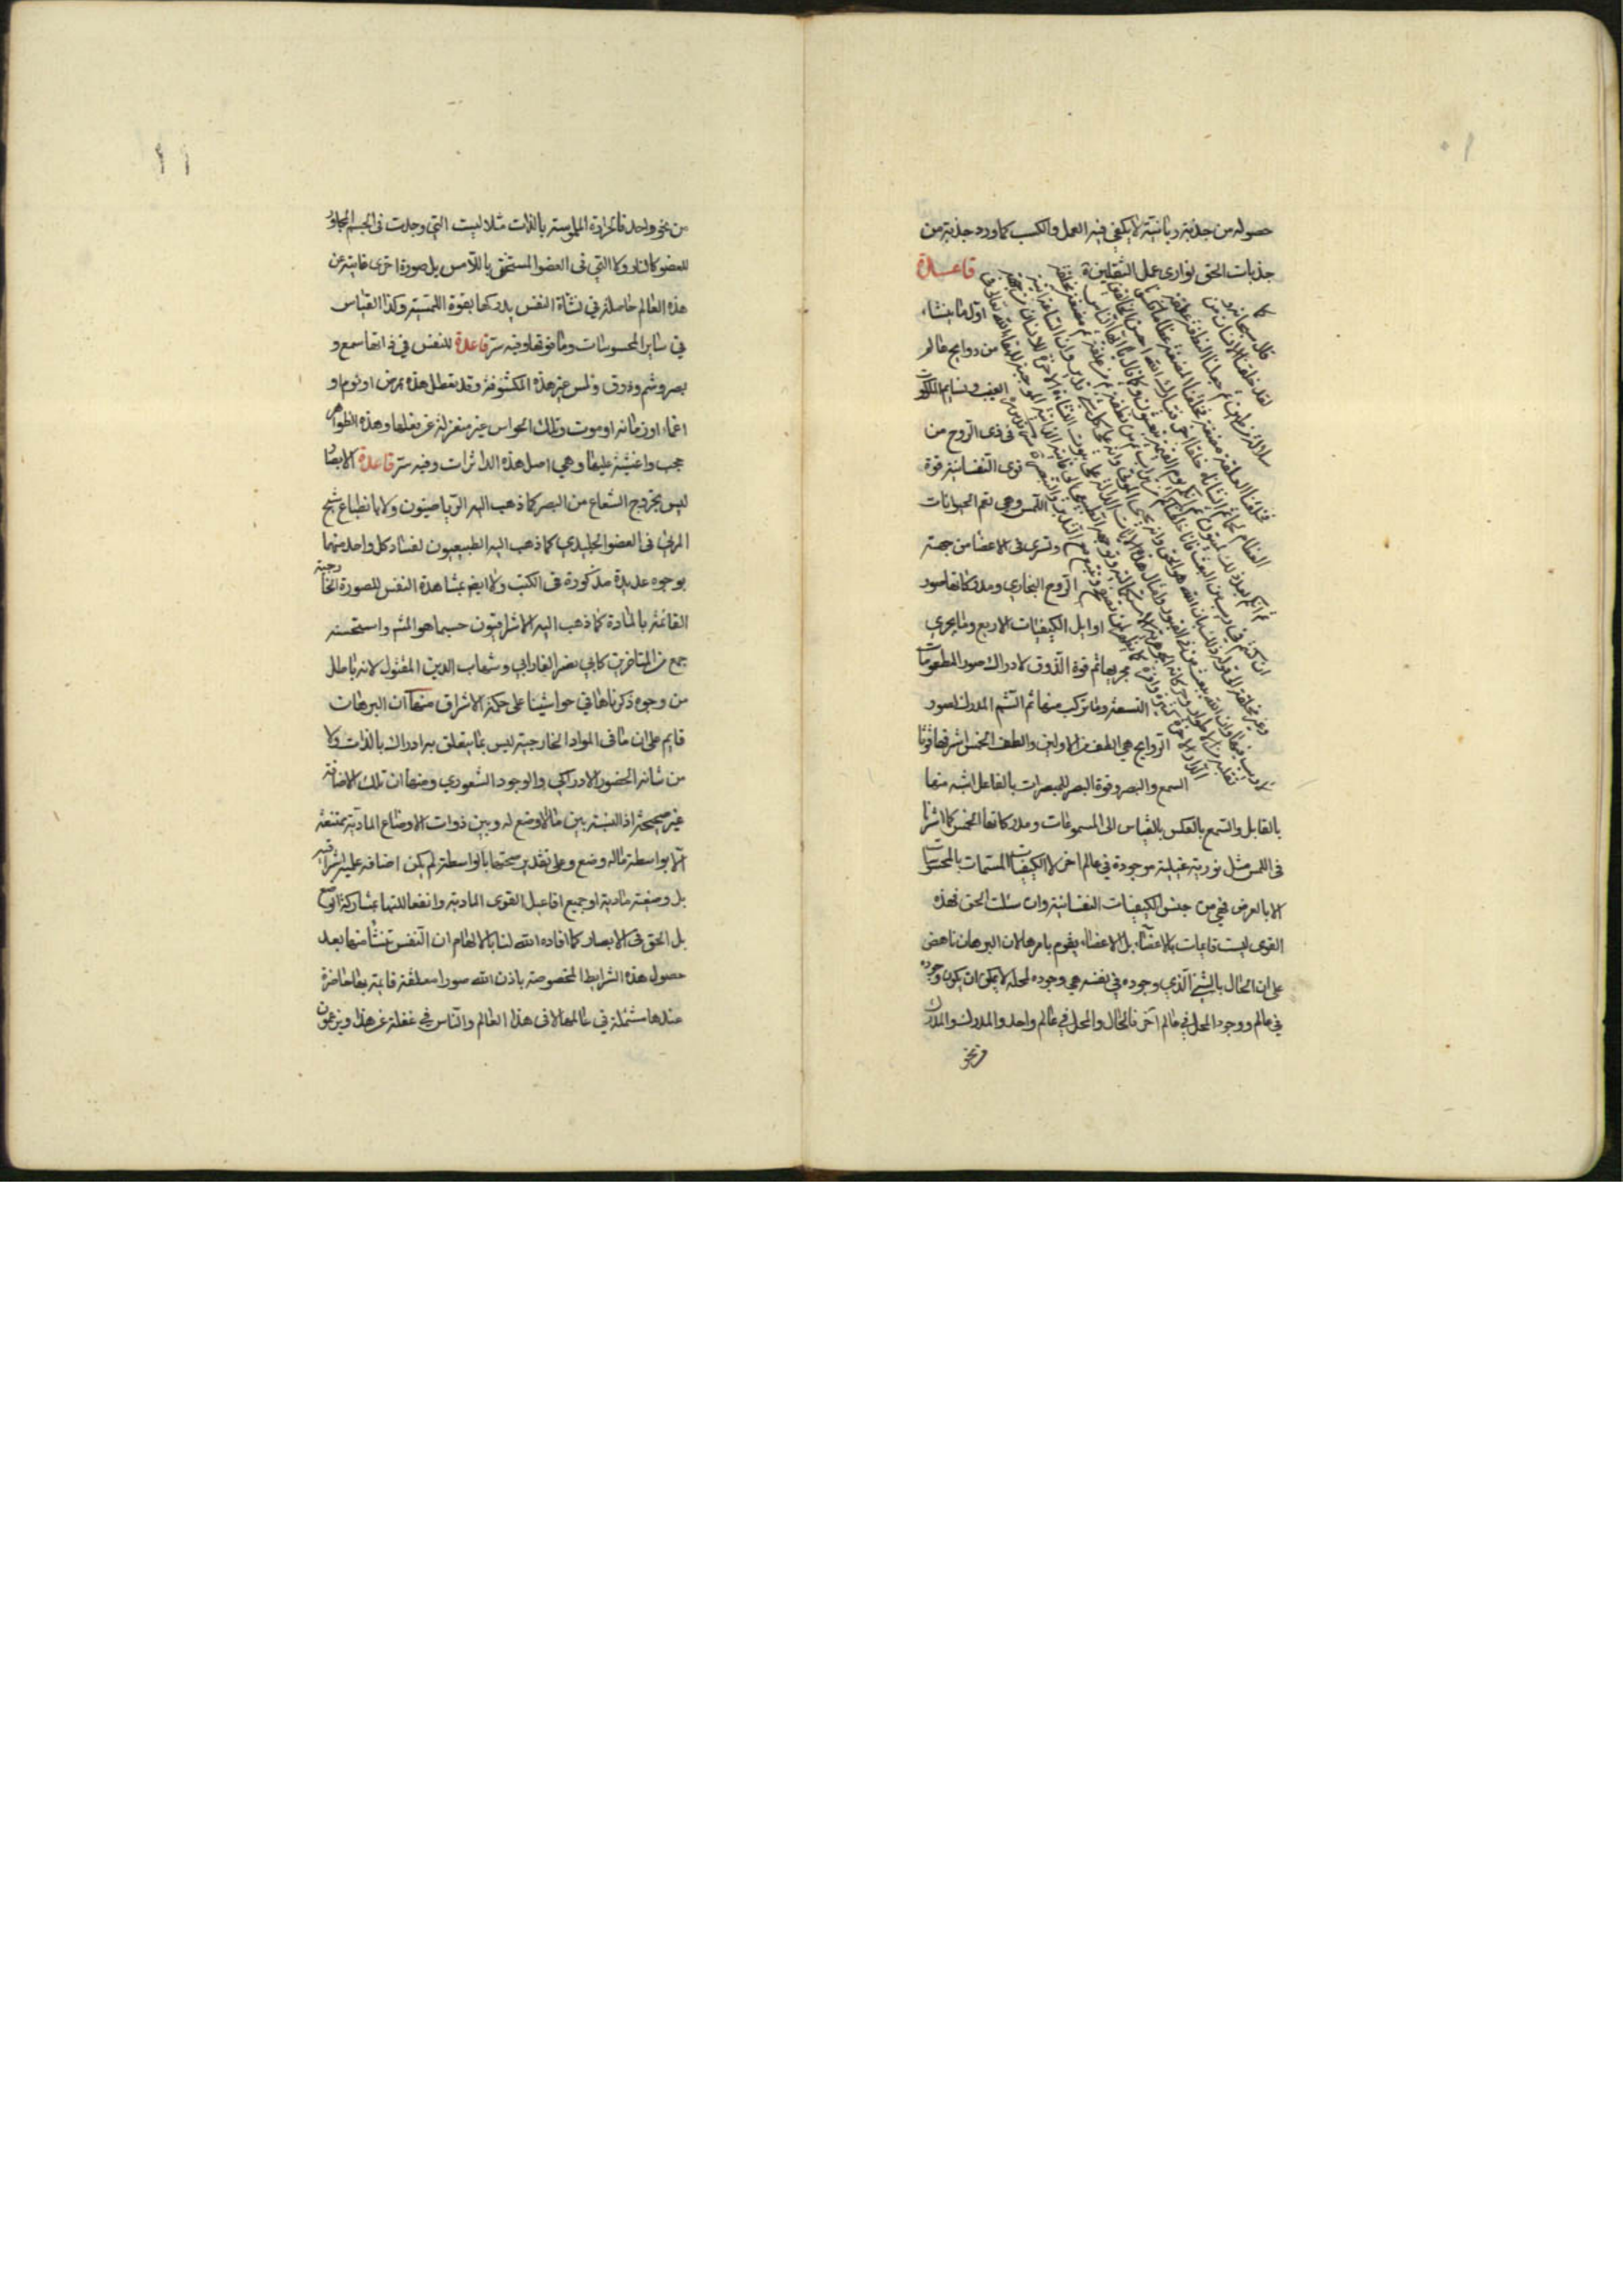 حصوله من جذبة ربانية لا يكفي فيه العمل والكسب كما ورد جذبة من
جذبات الحق توازى عمل الثقلين قاعدة
اول ما ينشاء
من روايح عالم
الغيب ونسايم الملكوت
فى ذى الروح من
قوى النفسانية قوة
اللمس وهى تعم الحيوانات
وتسرى فى الاعضا من جهة
الروح البخاري ومدركاتها صور
اوايل الكيفيات الاربع وما يجرى
مجريها ثم قوة الذوق لادراك صور المطعومات
التسعة وما تركب منها ثم الشم المدرك لصور
الروايح هي الطف من الاولين والطف الخمس اشرفها قوتا
السمع والبصر وقوة البصر للمبصرات بالفاعل اشبه منها
بالقابل والسمع بالعكس بالقياس الى المسموعات ومدركاتها الخمس كما اشرنا
فى اللمس مثل نورية غيبية موجودة في عالم اخر لا الكيفيات المسمات بالمحسوسات
الا بالعرض فهي من جنس الكيفيات النفسانية وان سئلت الحق فهذه
القوى ليست قايمات بالاعضاء بل الاعضاء يقوم بامرها لان البرهان ناهض
على ان الحال بالشئ الذي وجوده في نفسه هي وجوده لمحله لا يمكن ان يكون وجوده
في عالم ووجود المحل في عالم آخر فالحال والمحل في عالم واحد والمدرك والمدرك
كما
قال سبحانه و
لقد خلقنا الانسان من
سلالة من طين ثم جعلنا النطفة علقة
فخلقنا العلقة مضغة فخلقنا المضغة عظاما فكسونا
العظام لحما ثم انشأناه خلقا آخر فتبارك الله احسن الخالقين
ثم انكم بعد ذلك لميتون ثم انكم يوم القيمة تبعثون وكما قال يا ايها الناس
ان كنتم في ريب من البعث فانا خلقناكم من تراب ثم من نطفة ثم من علقة ثم من مضغة مخلقة
وغير مخلقة ذلك بان الله هو الحق وانه يحيى الموتى وانه على كل شئ قدير وان الساعة آتية
لا ريب فيها وان الله يبعث من فى القبور
من نحو واحد فالحرارة الملموسة بالذات مثلا ليست التي وجدت فى الجسم المجاور
للعضو كالنار ولا التي فى العضو المستسخن باللامس بل صورة اخرى غايبة عن
هذه العالم حاصلة في نشأة النفس يدركها بقوة اللمسية وكذا القياس
في ساير المحسوسات وما فوقها وفيه سر قاعدة للنفس في ذاتها سمع و
بصر وشم وذوق ولمس غير هذه المكشوفة وقد يعطل هذه بمرض او نوم او
اغماء او زمانه او موت وتلك الحواس غير منعزلة عن فعلها وهذه الظواهر
حجب واغشية عليها وهي اصل هذه الداثرات وفيه سر قاعدة الابصار
ليس بخروج الشعاع من البصر كما ذهب اليه الرياضيون ولا بانطباع شبح
المرئى فى العضو الجليدي كما ذهب اليه الطبيعيون لفساد كل واحد منهما
بوجوه عديدة مذكورة فى الكتب ولا ايضم بمشاهدة النفس للصورة الخارجية
القائمة بالمادة كما ذهب اليه الاشراقيون حسبما هو المشهر واستحسنه
جمع من المتاخرين كابي نصر الفارابي وشهاب الدين المقتول لانه باطل
من وجوه ذكرناها في حواشينا على حكمة الاشراق منها ان البرهان
قايم على ان ما فى المواد الخارجية ليس مما يتعلق به ادراك بالذات ولا
من شانه الحضور الادراكي والوجود الشعوري ومنها ان تلك الاضافة
غير صحيحة اذ النسبة بين ما لا وضع له وبين ذوات الاوضاع المادية ممتنعة
الا بواسطة ماله وضع وعلى تقدير صحتها بالواسطة لم يكن اضافة علمية اشراقية
بل وضعية مادية اذ جميع افاعيل القوى المادية وانفعالاتها بمشاركة الوضع
بل الحق فى الابصار كما افاده الله لنا بالالهام ان النفس تنشأ منها بعد
حصول هذه الشرايط المخصوصة باذن الله صورا معلقة قايمة بها حاضرة
عندها متمثلة في عالمها لا فى هذا العالم والناس في غفلة عن هذا ويزعمون